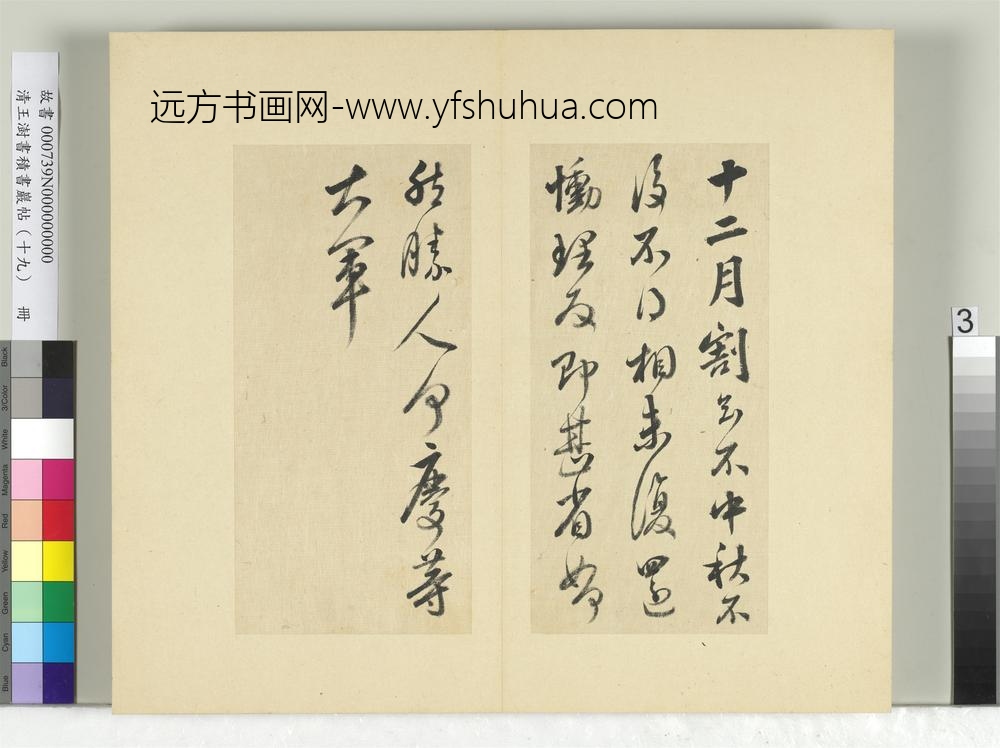 远方书画网-www.yfshuhua.com
故書 000739N000000000
清王澍書積書巖帖（十九） 冊
十二月割至不中秋不
復不得相未復還
慟理為即甚省如何
然勝人何慶等
大軍
3
Black
3/Color
White
Magenta
Red
Yellow
Green
Cyan
Blue